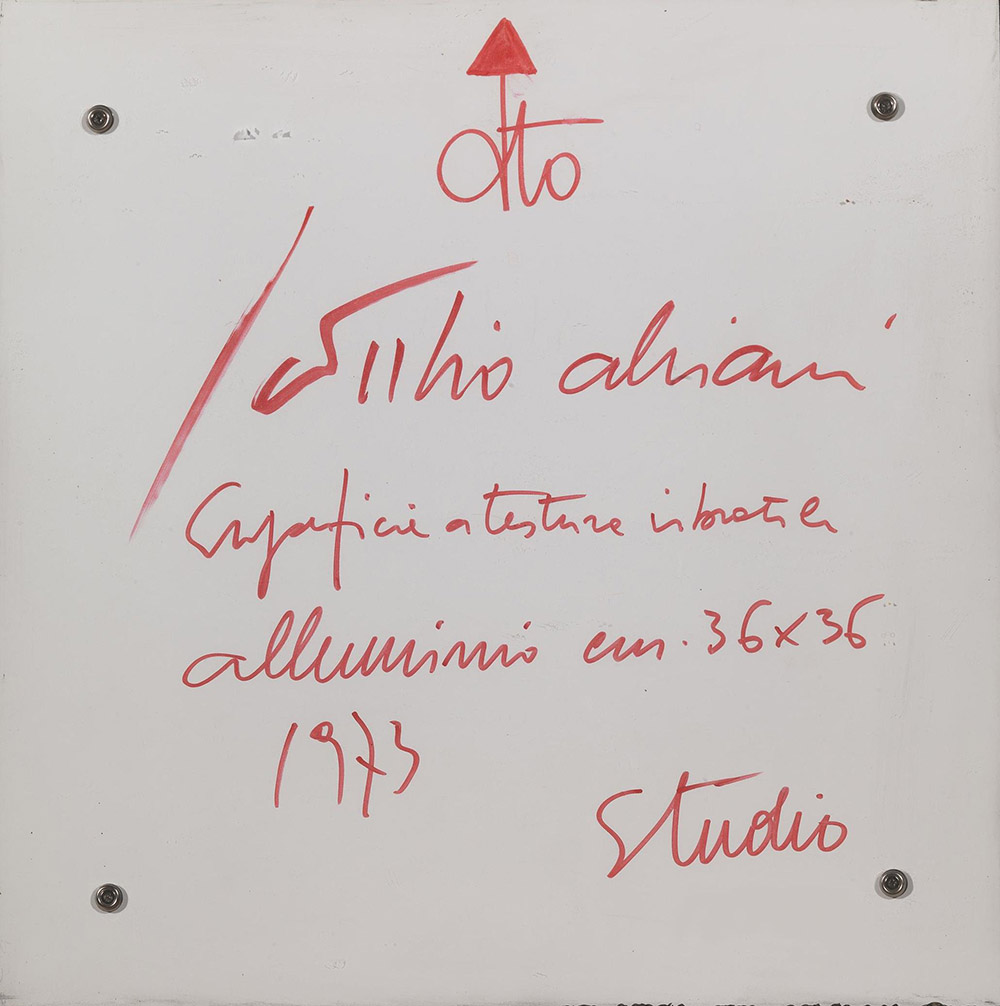 alto
Getulio alviani
Superficie a testura vibratile
alluminio cm. 36x36
1973
Studio